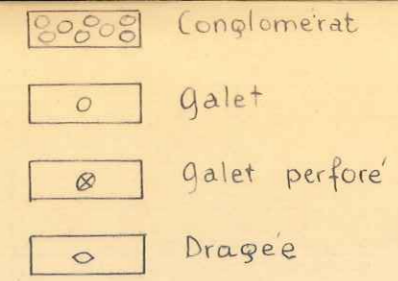 Conglomérat
Galet
Galet perforé
Dragée